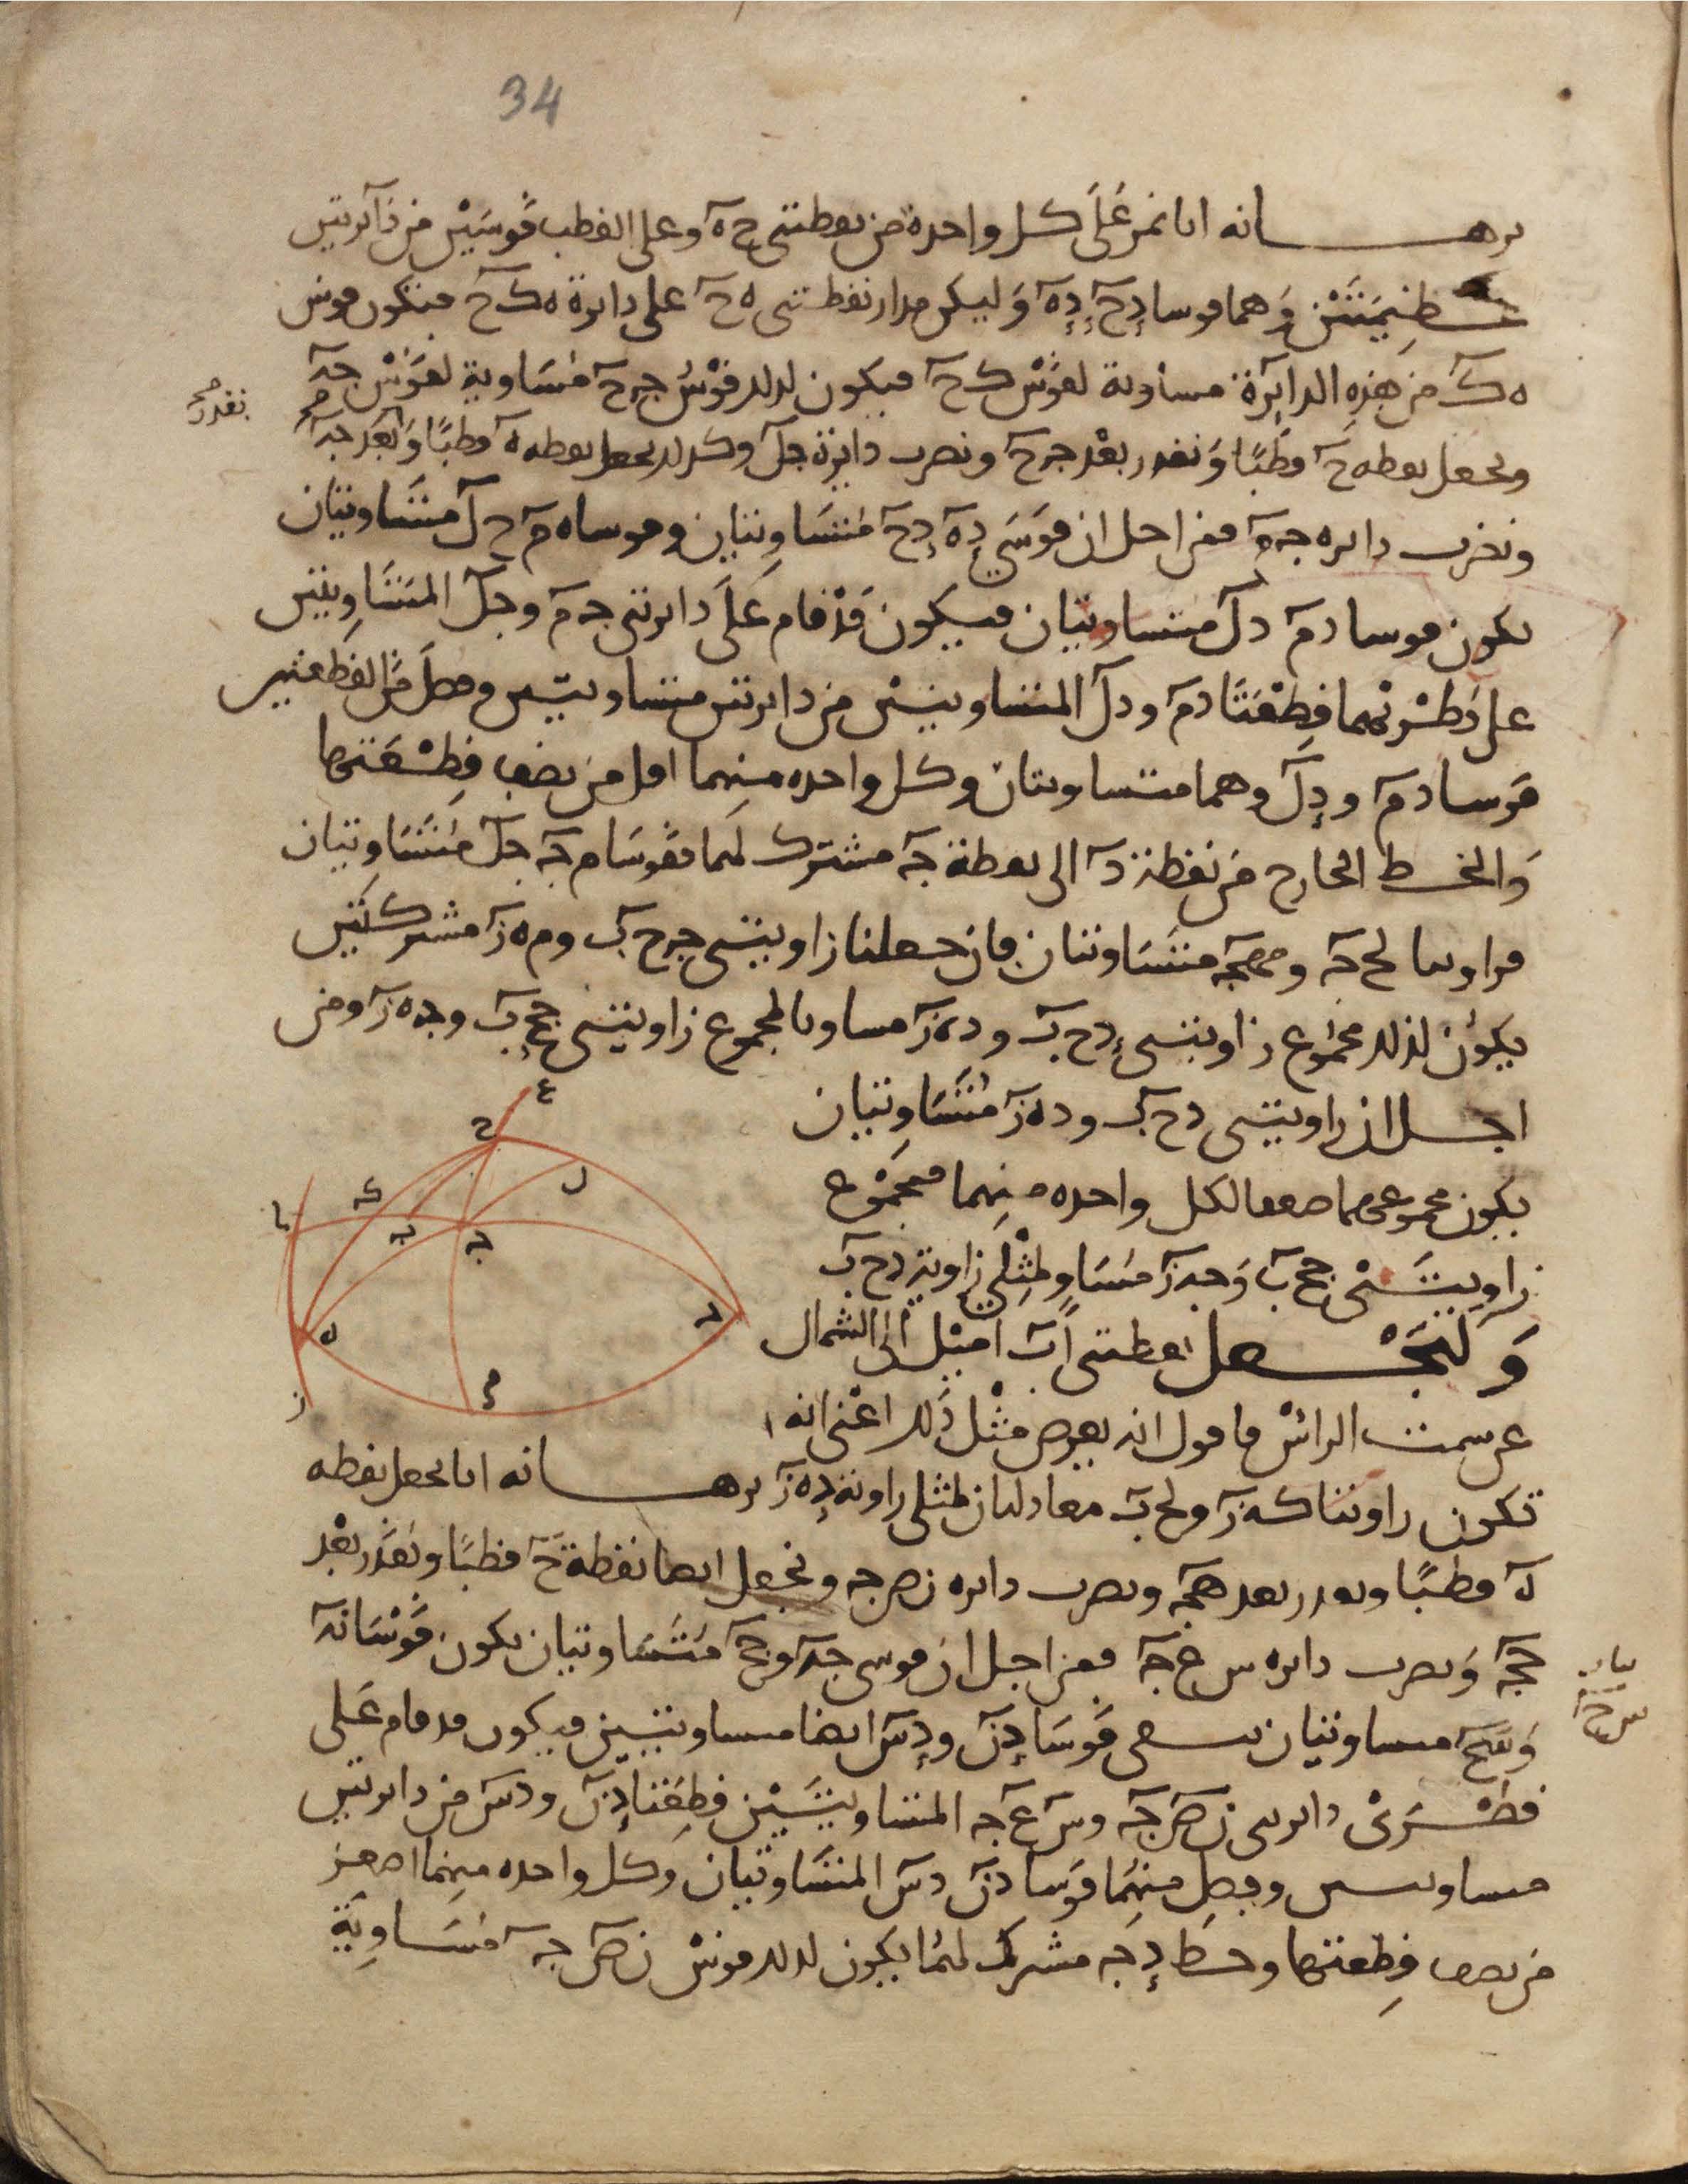 34
برهـــانه انا نمر على كل واحدة من نقطتي ح ه وعلى القطب قوسين من دآئرتين
عظيمتين وهما قوسا دح ده وليكن مدار نقطتي ه ح على دايرة ه ك ح فتكون قوس
ه ك من هذه الدآيرة مساوية لقوس ك ح فيكون لذلك قوس ج ح مساوية لقوس ج ه
ونجعل نقطه ح قطبا ونقدر بعد ج ح ونضرب دايرة ج ل وكذلك نجعل نقطه ه قطبا وببعد ج ه
نقدر صح
ونضرب دايره ج م فمن اجل ان قوسي ده دح متساويتان وقوسا ه م ح ل متساويتان
يكون قوسا دم دل متساويتان فيكون قد قام على دايرتي ج م وج ل المتساويتين
على قطريهما قطعتا دم ودل المتساويتين من دايرتين متساويتين وفصل من القطعتين
قوسا دم ودل وهما متساويتان وكل واحده منهما اقل من نصف قطعتها
والخط الخارج من نقطة د الى نقطة ج مشترك لهما فقوسا م ج ج ل متساويتان
فزاويتا ل ح ج و م ه ج متساويتان فان جعلنا زاويتي ج ح ب و م ه ز مشتركتين
يكون لذلك مجموع زاويتي د ح ب و د ه ز مساويا لمجموع زاويتي ج ح ب و ج ه ز ومن
اجل ان زاويتي د ح ب و د ه ز متساويتان
يكون مجموعهما ضعفا لكل واحده منهما فمجموع
زاويتي ج ح ب و ج ه ز مساو لمثلي زاوية د ح ب
ولنجعل نقطتي ا ب اميل الى الشمال
عن سمت الرائس فاقول انه يعرض مثل ذلك اعني انه
تكون زاويتا ك ه ز و ل ح ب معادلتان لمثلي زاوية د ه ز برهـــانه انا نجعل نقطه
ه قطبا ونقدر بعد ه ج ونضرب دايره ن ص ج ونجعل ايضا نقطة ح قطبا ونقدر بعد
ح ج ونضرب دايره س ع ج فمن اجل ان قوسي ج ه و ج ح متساويتان يكون قوسا ن ه
و س ح متساويتان تبقى قوسا د ن و د س ايضا متساويتين فيكون قد قام على
قطري دايرتي ن ص ج و س ع ج المتساويتين قطعتا د ن و د س من دايرتين
متساويتين وفصل منهما قوسا د ن د س المتساويتان وكل واحده منهما اصغر
من نصف قطعتها وخط د ج مشترك لهما يكون لذلك قوس ن ص ج مساوية
ع
ح
ل
ك
ا
ب
ج
د
ه
م
ز